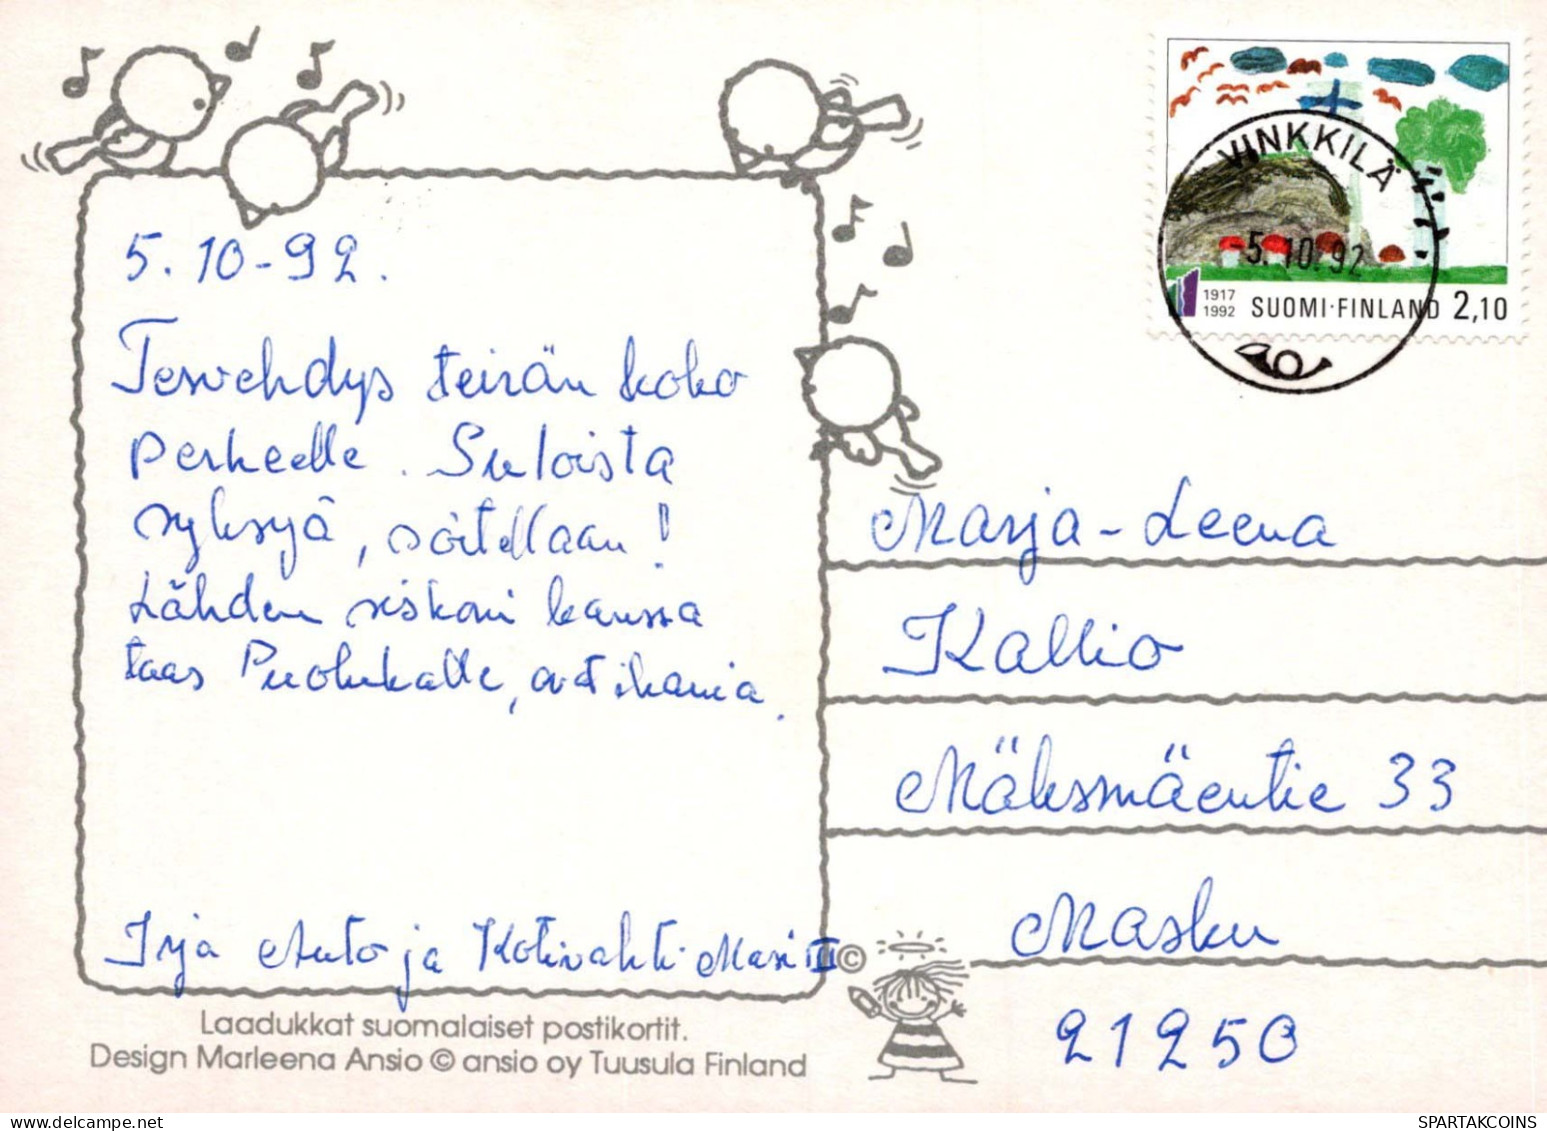 5.10-92.
Tervehdys teirän koko
perheelle. Suloista
syksyä, soitellaan!
Lähden siskoni kanssa
taas Puolukalle, avtikania.
Irja Auto ja Kotivahti Masi II
Laadukkat suomalaiset postikortit.
Design Marleena Ansio © ansio oy Tuusula Finland
©
VINKKILÄ
-5.10.92
1917
1992 SUOMI·FINLAND 2,10
Marja-Leena
Kallio
Mäksmäentie 33
Masku
21250
SPARTAKCOINS